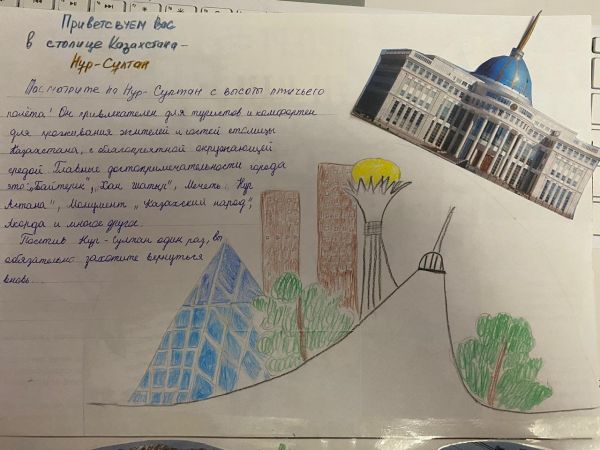 Приветсвуем Вас
в столице Казахстана -
Нур-Султан
Посмотрите на Нур-Султан с высоты птичьего
полёта! Он привлекателен для туристов и комфортен
для проживания жителей и гостей столицы
Казахстана, с благоприятной окружающей
средой. Главные достопримечательности города
это: "Байтерек", "Хан шатыр", Мечеть "Нур
Астана", Монумент "Казахский народ",
Акорда и многое другое.
Посетив Нур-Султан один раз, вы
обязательно захотите вернуться
вновь...